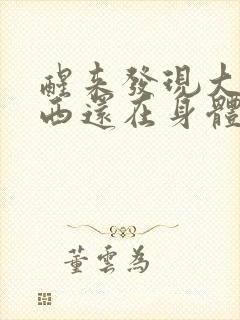 醒来發現大
西還在身體
董雲為